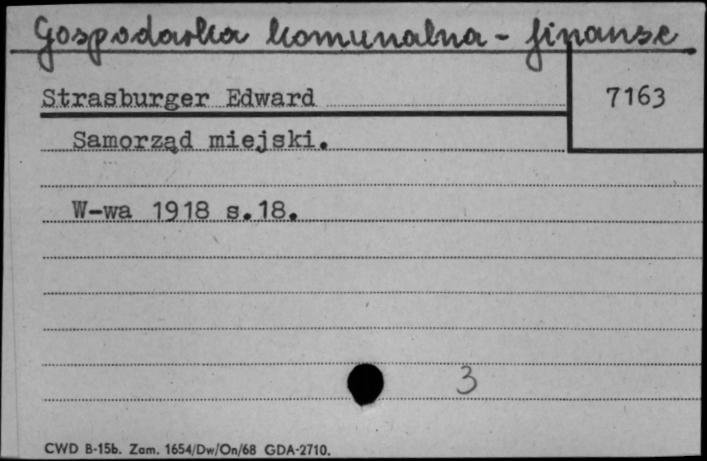 Gospodarka komunalna - finanse
Strasburger Edward
7163
Samorząd miejski.
W-wa 1918 s.18.
3
CWD B-15b. Zam. 1654/Dw/On/68 GDA-2710.